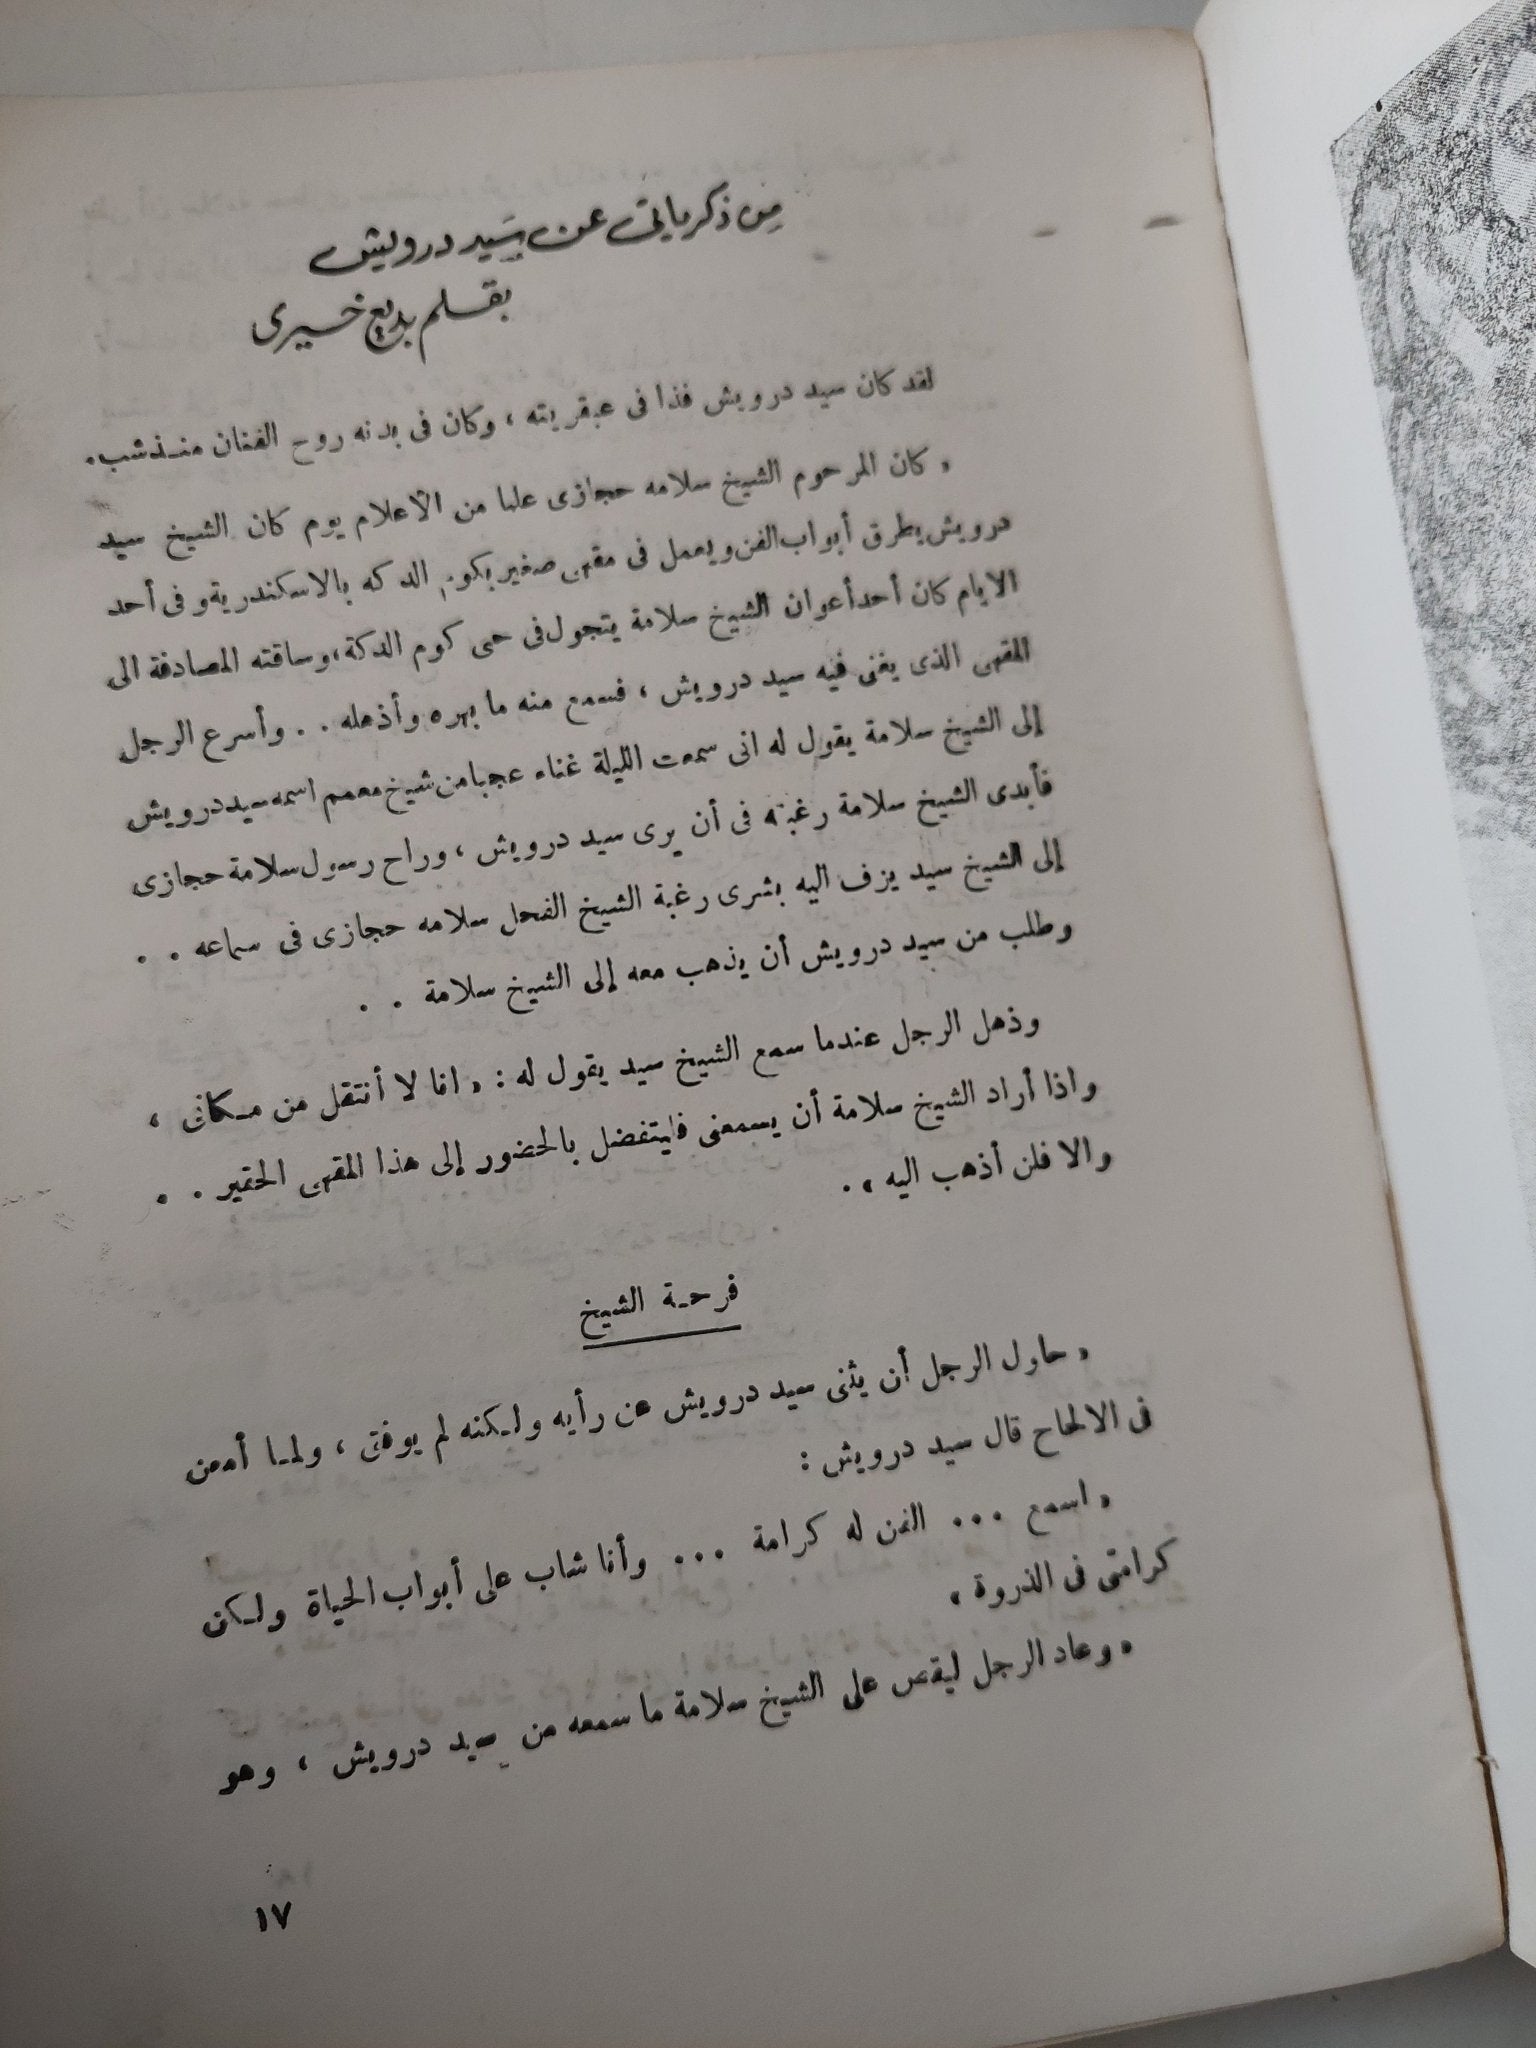 من ذكرياتى عن سيد درويش
بقلم بديع خيرى
لقد كان سيد درويش فذا فى عبقريته ، وكان فى بدنه روح الفنان منـذشب .
« كان المرحوم الشيخ سلامه حجازى علما من الأعلام يوم كان الشيخ سيد
درويش يطرق أبواب الفن ويعمل فى مقهى صغير بكوم الدكه بالاسكندرية وفى أحد
الايام كان أحد أعوان الشيخ سلامة يتجول فى حى كوم الدكة ، وساقته المصادفة الى
المقهى الذى يغنى فيه سيد درويش ، فسمع منه ما بهره وأذهله . . وأسرع الرجل
إلى الشيخ سلامة يقول له انى سمعت الليلة غناء عجبا من شيخ معمم اسمه سيد درويش
فأبدى الشيخ سلامة رغبته فى أن يرى سيد درويش ، وراح رسول سلامة حجازى
إلى الشيخ سيد يزف اليه بشرى رغبة الشيخ الفحل سلامه حجازى فى سماعه . .
وطلب من سيد درويش أن يذهب معه إلى الشيخ سلامة . .
وذهل الرجل عندما سمع الشيخ سيد يقول له : « انا لا أنتقل من مـكانى ،
واذا أراد الشيخ سلامة أن يسمعنى فليتفضل بالحضور إلى هذا المقهى الحقير . .
والا فلن أذهب اليه » .
فرحـة الشيخ
« حاول الرجل أن يثنى سيد درويش عن رأيه ولـكنه لم يوفق ، ولمـا أمعن
فى الالحاح قال سيد درويش :
« اسمع ... الفن له كرامة ... وأنا شاب على أبواب الحياة ولـكن
كرامتى فى الذروة »
« وعاد الرجل ليقص على الشيخ سلامة ما سمعه من سيد درويش ، وهو
١٧